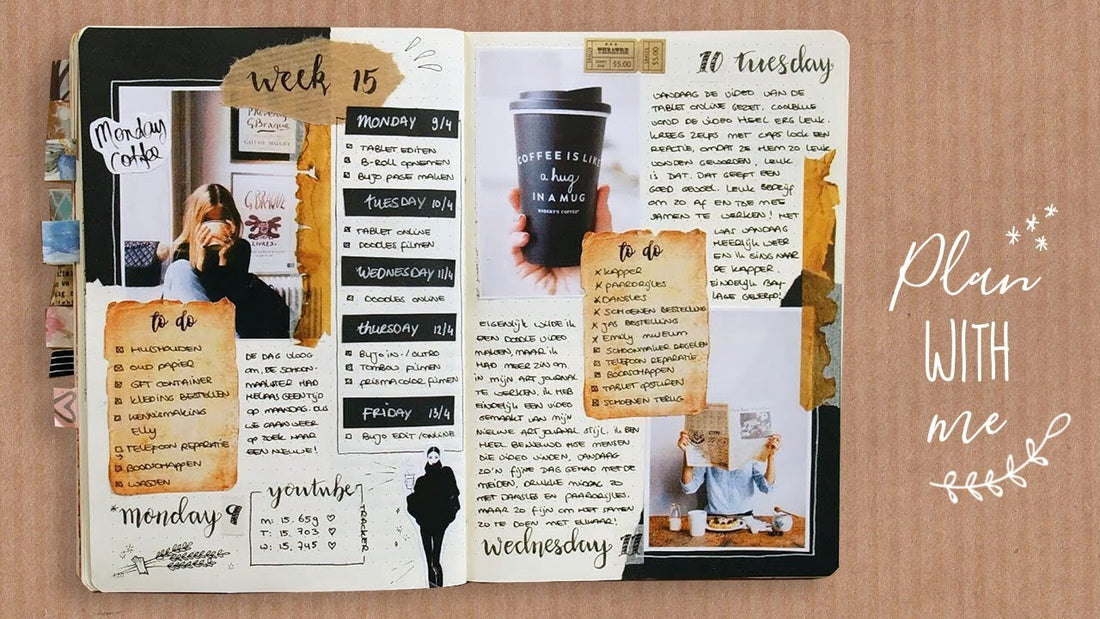 week 15
Monday
coffee
G BRAQUE
to do
HUISHOUDEN
OUD PAPIER
GFT CONTAINER
KLEDING BESTELLEN
KENNISMAKING
Elly
TELEFOON REPARATIE
BOODSCHAPPEN
WASSEN
DE DAG VLOOG
OM. DE SCHOON-
MAAKSTER HAD
HELAAS GEEN TIJD
OP MAANDAG. DUS
WE GAAN WEER
OP ZOEK NAAR
EEN NIEUWE!
*monday 9
MONDAY 9/4
TABLET EDITEN
B-ROLL OPNEMEN
BUJO PAGE MAKEN
TUESDAY 10/4
TABLET ONLINE
DOODLES FILMEN
WEDNESDAY 11/4
DOODLES ONLINE
THURSDAY 12/4
BUJO IN-/OUTRO
TOMBOW FILMEN
PRISMACOLOR FILMEN
FRIDAY 13/4
BUJO EDIT/ONLINE
youtube
TRACKER
M: 15.659
T: 15.703
W: 15.745
COFFEE IS LIKE
a hug
IN A MUG
ROBERT'S COFFEE
THEATRE
$5.00
$5.00
10 tuesday
VANDAAG DE VIDEO VAN DE
TABLET ONLINE GEZET.
VOND DE VIDEO HEEL ERG LEUK.
KREEG ZELFS MET CAPS LOCK EEN
REACTIE, OMDAT ZE HEM ZO LEUK
VONDEN GEWORDEN. LEUK
IS DAT. DAT GEEFT EEN
GOED GEVOEL. LEUK BEDRIJF
OM ZO AF EN TOE MET
SAMEN TE WERKEN! HET
WAS VANDAAG
HEERLIJK WEER
EN IK GING NAAR
DE KAPPER.
EINDELIJK
to do
KAPPER
PAARDRIJLES
DANSLES
SCHOENEN BESTELLING
JAS BESTELLING
EMELY MUSEUM
SCHOONMAKER REGELEN
TELEFOON REPARATIE
BOODSCHAPPEN
TABLET OPSTUREN
SCHOENEN TERUG
EIGENLIJK WILDE IK
EEN DOODLE VIDEO
MAKEN, MAAR IK
HAD MEER ZIN OM
IN MIJN ART JOURNAL
TE WERKEN. IK HEB
EINDELIJK EEN VIDEO
GEMAAKT VAN MIJN
NIEUWE ART JOURNAL STIJL. IK BEN
HEEL BENIEUWD HOE MENSEN
DIE VIDEO VINDEN. VANDAAG
ZO'N FIJNE DAG GEHAD MET DE
MEIDEN. DRUKKE MIDDAG ZO
MET DANSLES EN PAARDRIJLES.
MAAR ZO FIJN OM HET SAMEN
ZO TE DOEN MET ELKAAR!
wednesday 11
Plan
WITH
me